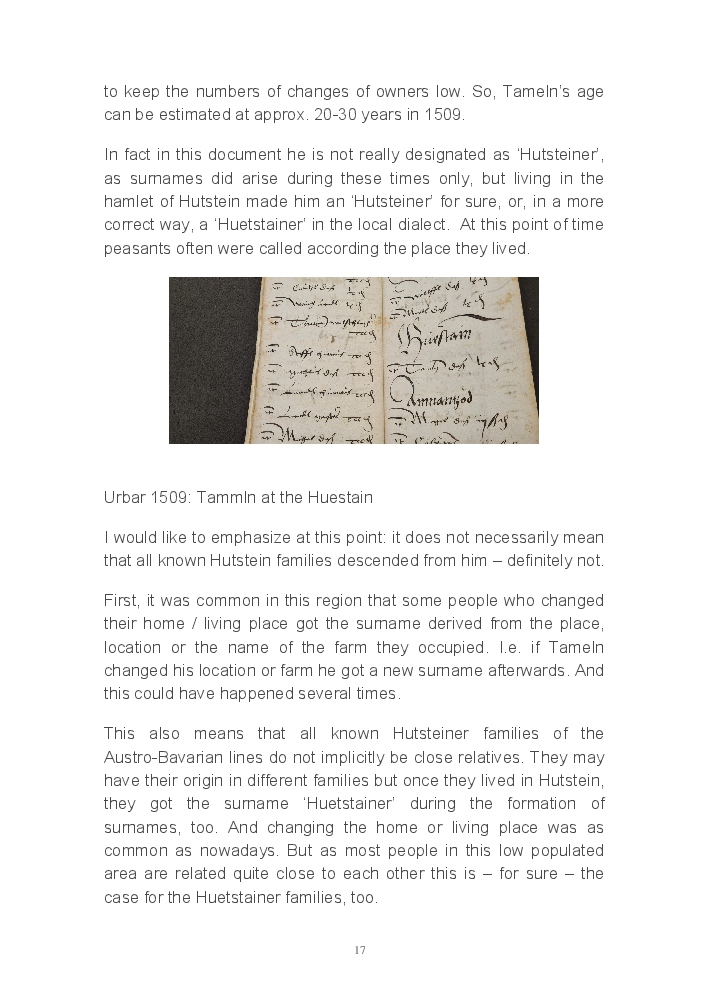 to keep the numbers of changes of owners low. So, Tameln's age
can be estimated at approx. 20-30 years in 1509.
In fact in this document he is not really designated as 'Hutsteiner',
as surnames did arise during these times only, but living in the
hamlet of Hutstein made him an 'Hutsteiner' for sure, or, in a more
correct way, a 'Huetstainer' in the local dialect. At this point of time
peasants often were called according the place they lived.
Huestain
Urbar 1509: Tammln at the Huestain
I would like to emphasize at this point: it does not necessarily mean
that all known Hutstein families descended from him – definitely not.
First, it was common in this region that some people who changed
their home / living place got the surname derived from the place,
location or the name of the farm they occupied. I.e. if Tameln
changed his location or farm he got a new surname afterwards. And
this could have happened several times.
This also means that all known Hutsteiner families of the
Austro-Bavarian lines do not implicitly be close relatives. They may
have their origin in different families but once they lived in Hutstein,
they got the surname 'Huetstainer' during the formation of
surnames, too. And changing the home or living place was as
common as nowadays. But as most people in this low populated
area are related quite close to each other this is – for sure – the
case for the Huetstainer families, too.
17